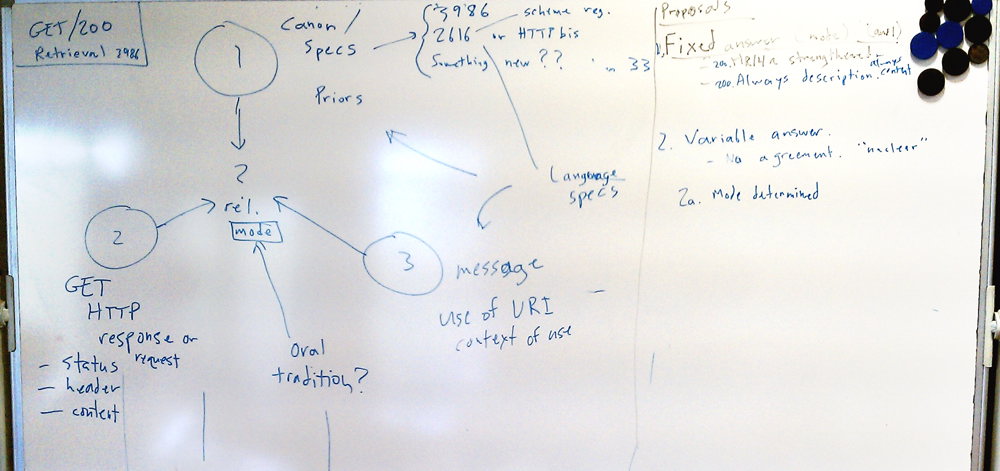 GET/200
Retrieval 3986
1
Canon/
Specs
Priors
3986 - scheme reg.
2616 or HTTP bis
Something new ?? 33
Language
specs
2
rel.
mode
2
GET
HTTP
response or
request
- status
- header
- content
Oral
tradition?
3
message
use of URI
context of use
Proposals
1. Fixed answer (mode)
strengthened
200. Always description. content
always
2. Variable answer.
- No agreement. "nuclear"
2a. Mode determined